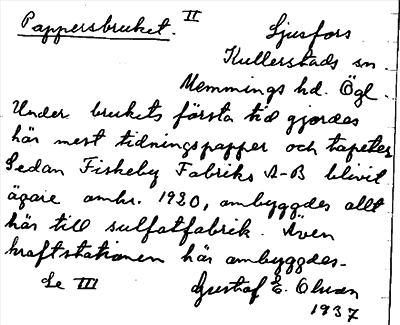 Pappersbruket. II Ljusfors
Kullerstads sn
Memmings hd. Ögl.
Under brukets första tid gjordes
här mest tidningspapper och tapeter
Sedan Fiskeby Fabriks A-B blivit
ägare omkr. 1920, ombyggdes allt
här till sulfatfabrik. Även
kraftstationen här ombyggdes-
Se III Gustaf E. Olson
1937